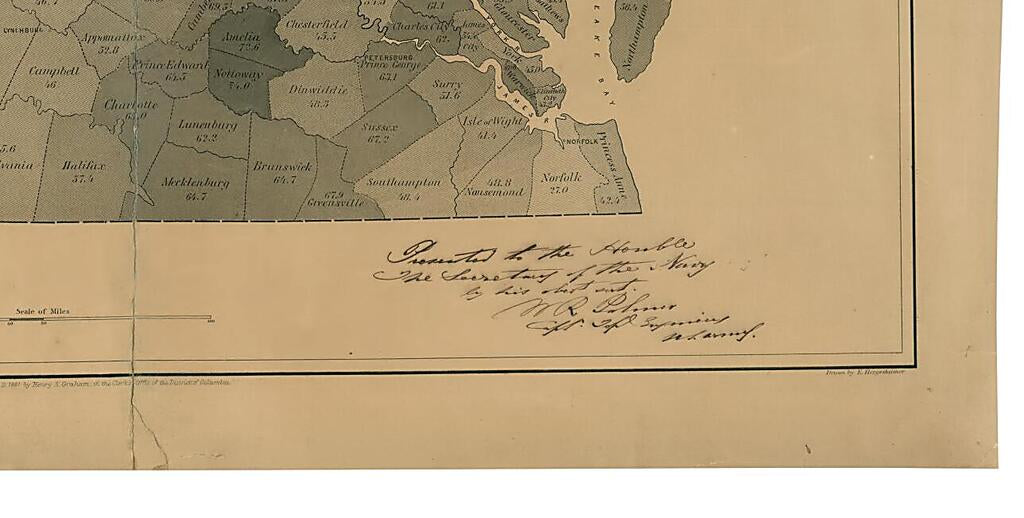 56.4
Northampton
Gloucester
LYNCHBURG
Appomattox
52.8
Amelia
72.6
Chesterfield
Charles City
62.
James
City
York
Warwick
CHESAPEAKE BAY
Campbell
46
Prince Edward
64.5
Nottoway
74.0
PETERSBURG
Prince George
63.1
Surry
51.6
JAMES R.
Charlotte
Dinwiddie
48.5
Lunenburg
62.3
Sussex
67.2
Isle of Wight
41.4
NORFOLK
Princess Anne
42.4
5.6
vania
Halifax
57.4
Mecklenburg
64.7
Brunswick
64.7
67.9
Greensville
Southampton
48.4
48.8
Nansemond
Norfolk
27.0
Presented to the Honble
The Secretary of the Navy
by his obdt svt.
W R Palmer
Capt. Topl Engineers
U.S. Army.
Scale of Miles
D. 1861 by Henry S. Graham, in the Clerks Office of the District of Columbia
Drawn by E. Hergesheimer